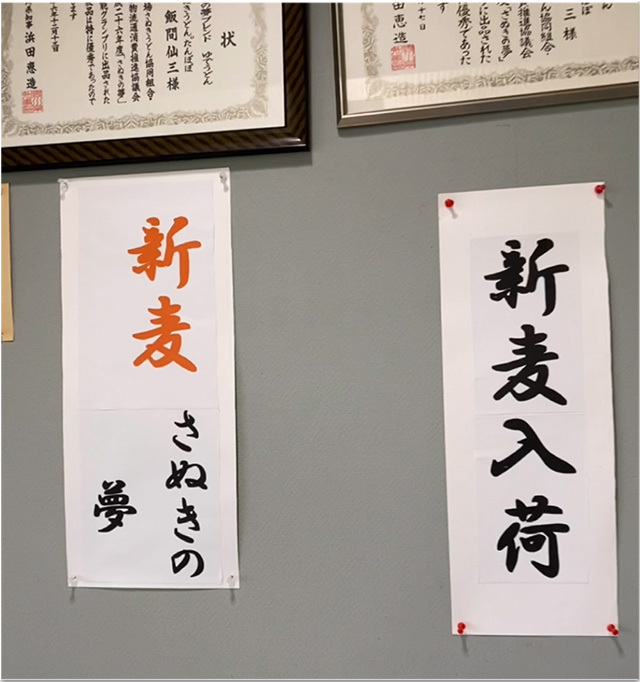 状
の夢ブレンド ゆでうどん
きうどん たんぽぽ
飯間仙三様
場さぬきうどん協同組合・
物流通消費推進協議会
二十六年度「さぬきの夢」
グランプリに出品された
品は特に優秀であったので
ます
県知事 浜田恵造
ぽぽ
三様
ん協同組合・
推進協議会
さぬきの夢」
に出品された
優秀であった
す
十七日
田恵造
新麦
さぬきの
夢
新麦入荷